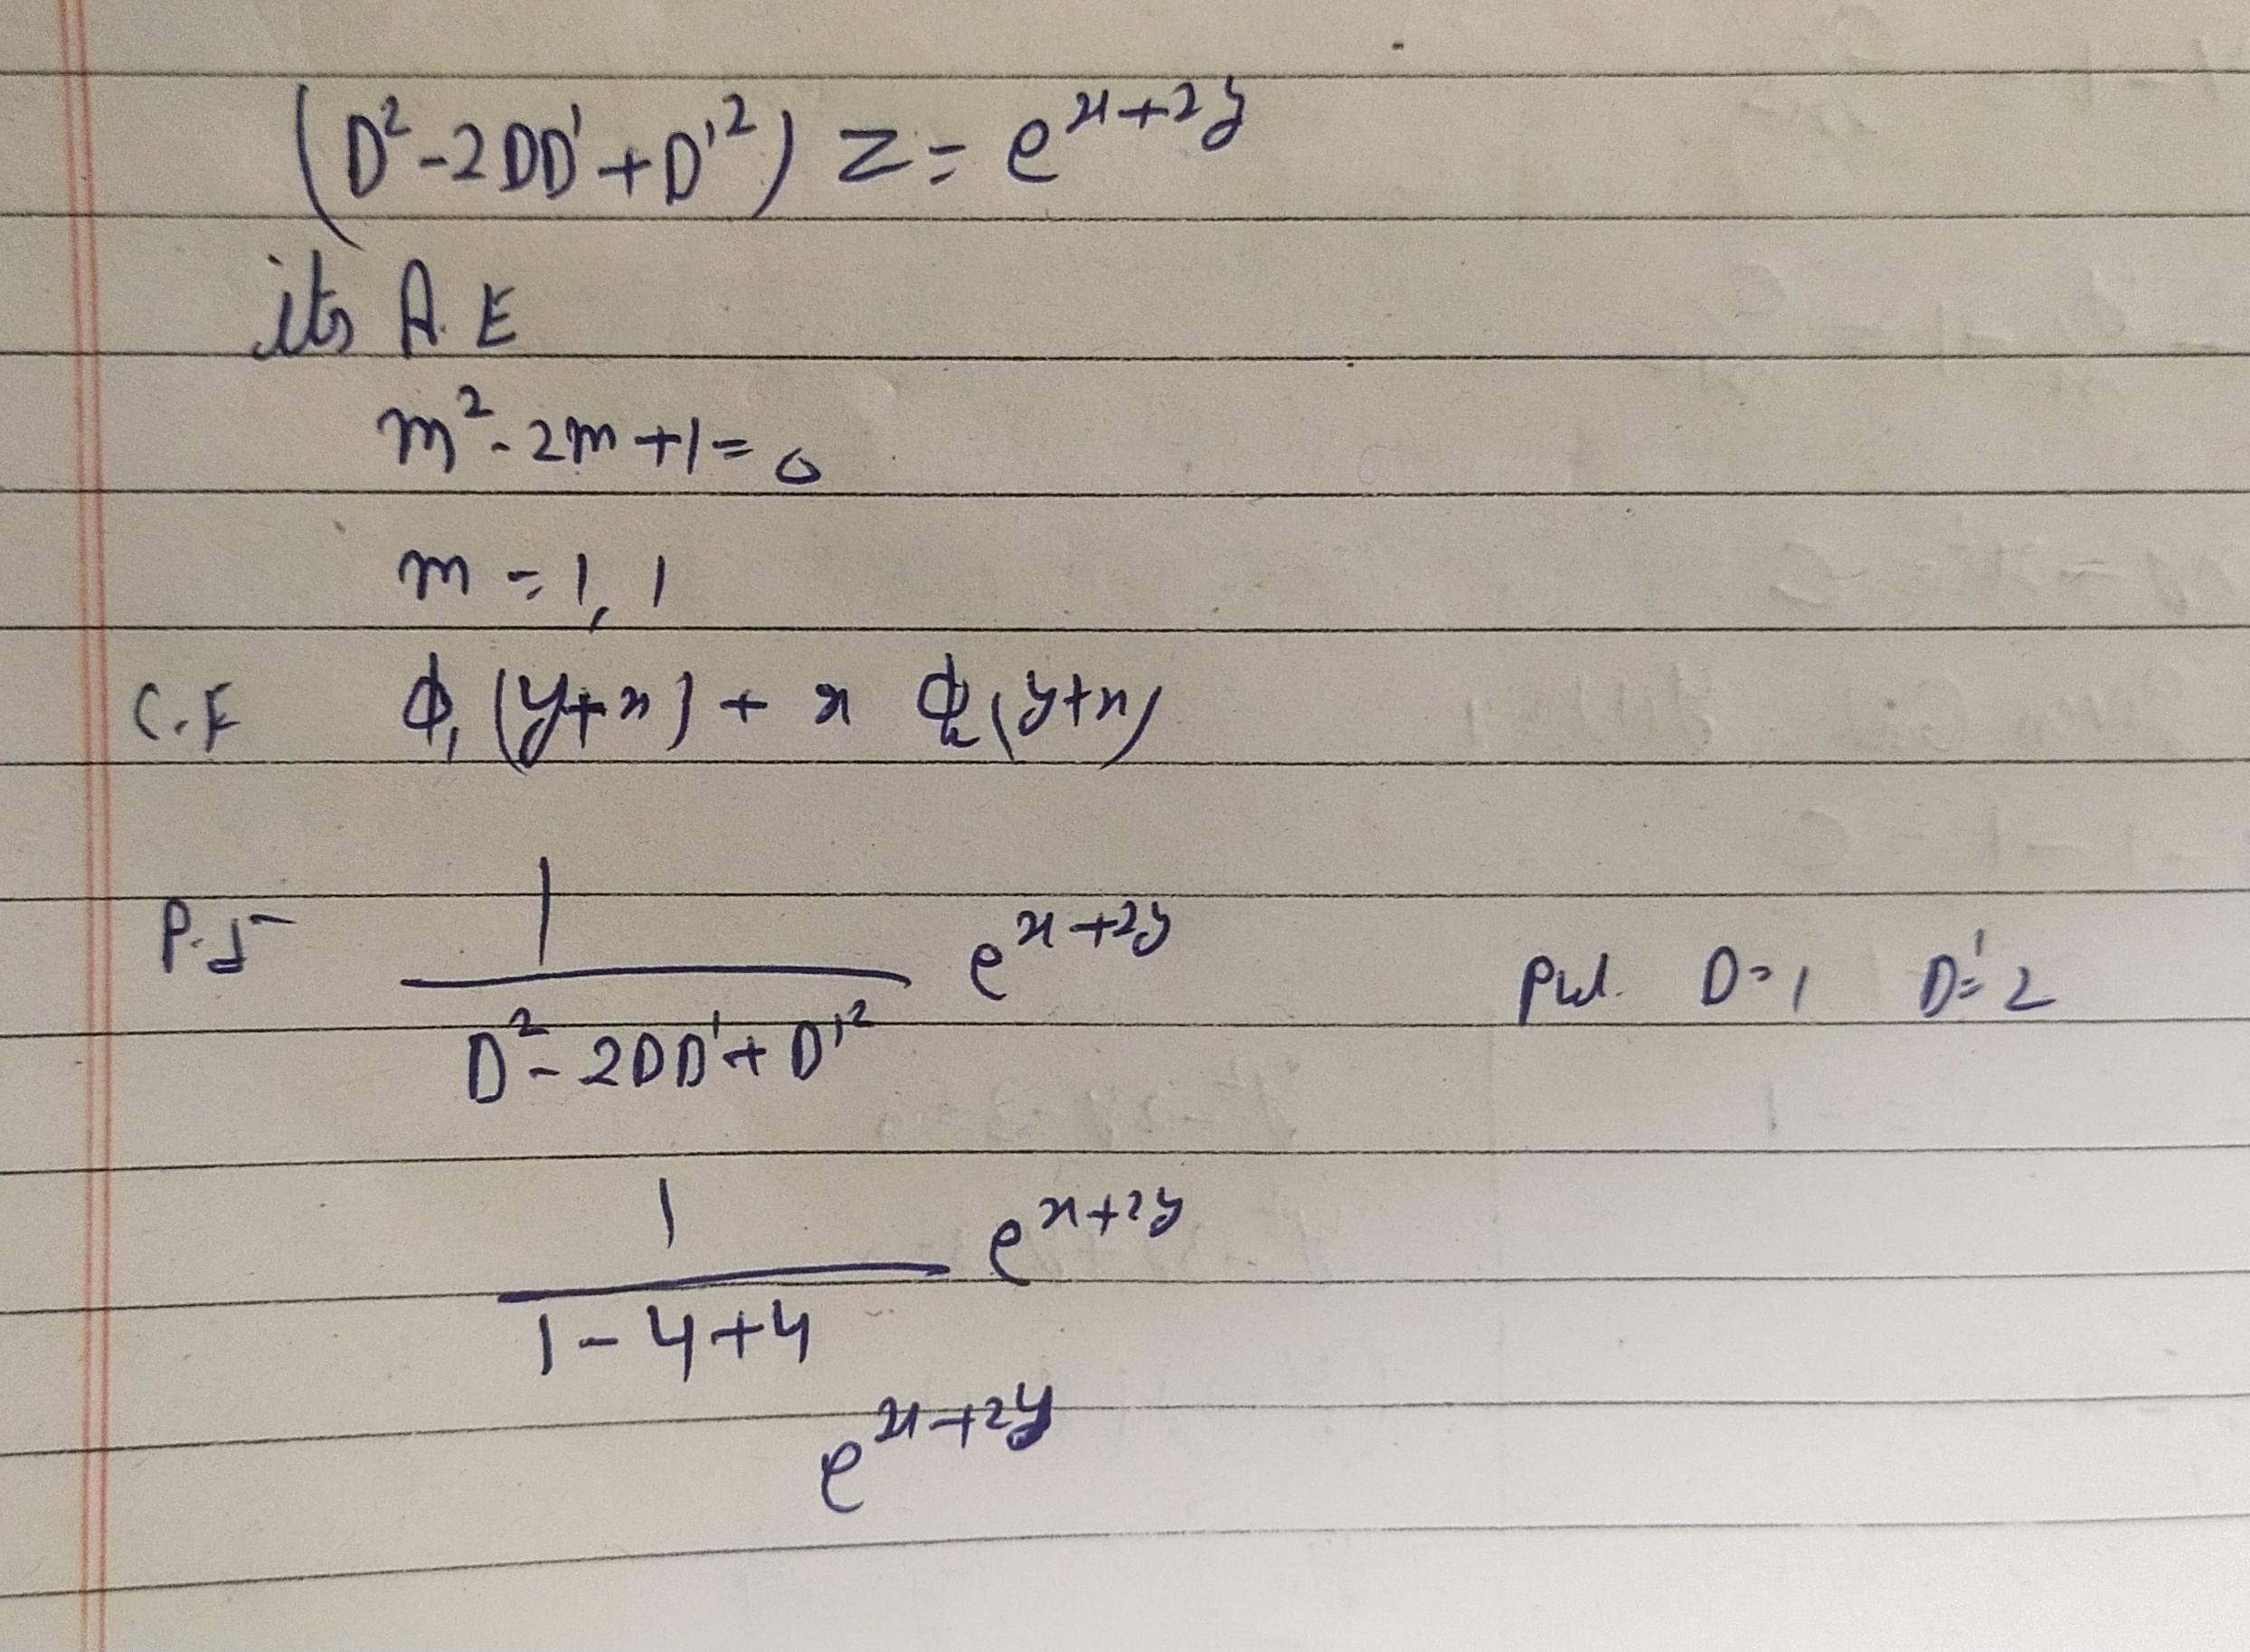 (D²-2DD'+D'²) z = e^{x+2y}
its A.E
m²-2m+1=0
m = 1, 1
C.F ϕ₁(y+x) + x ϕ₂(y+x)
P.I 1/(D²-2DD'+D'²) e^{x+2y} Put D=1 D'=2
1/(1-4+4) e^{x+2y}
e^{x+2y}